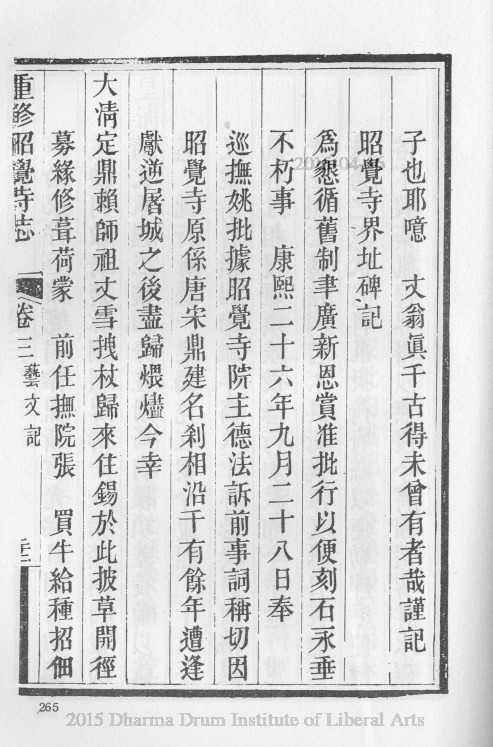 子也耶噫　丈翁眞千古得未曾有者哉謹記
昭覺寺界址碑記
爲懇循舊制聿廣新恩賞准批行以便刻石永垂
不朽事　康熙二十六年九月二十八日奉
巡撫姚批據昭覺寺院主德法訴前事詞稱切因
昭覺寺原係唐宋鼎建名刹相沿千有餘年遭逢
獻逆屠城之後盡歸煨燼今幸
大清定鼎賴師祖丈雪拽杖歸來住錫於此披草開徑
募緣修葺荷蒙　前任撫院張　買牛給種招佃
重修昭覺寺志　卷三　藝文　記
265
2015 Dharma Drum Institute of Liberal Arts